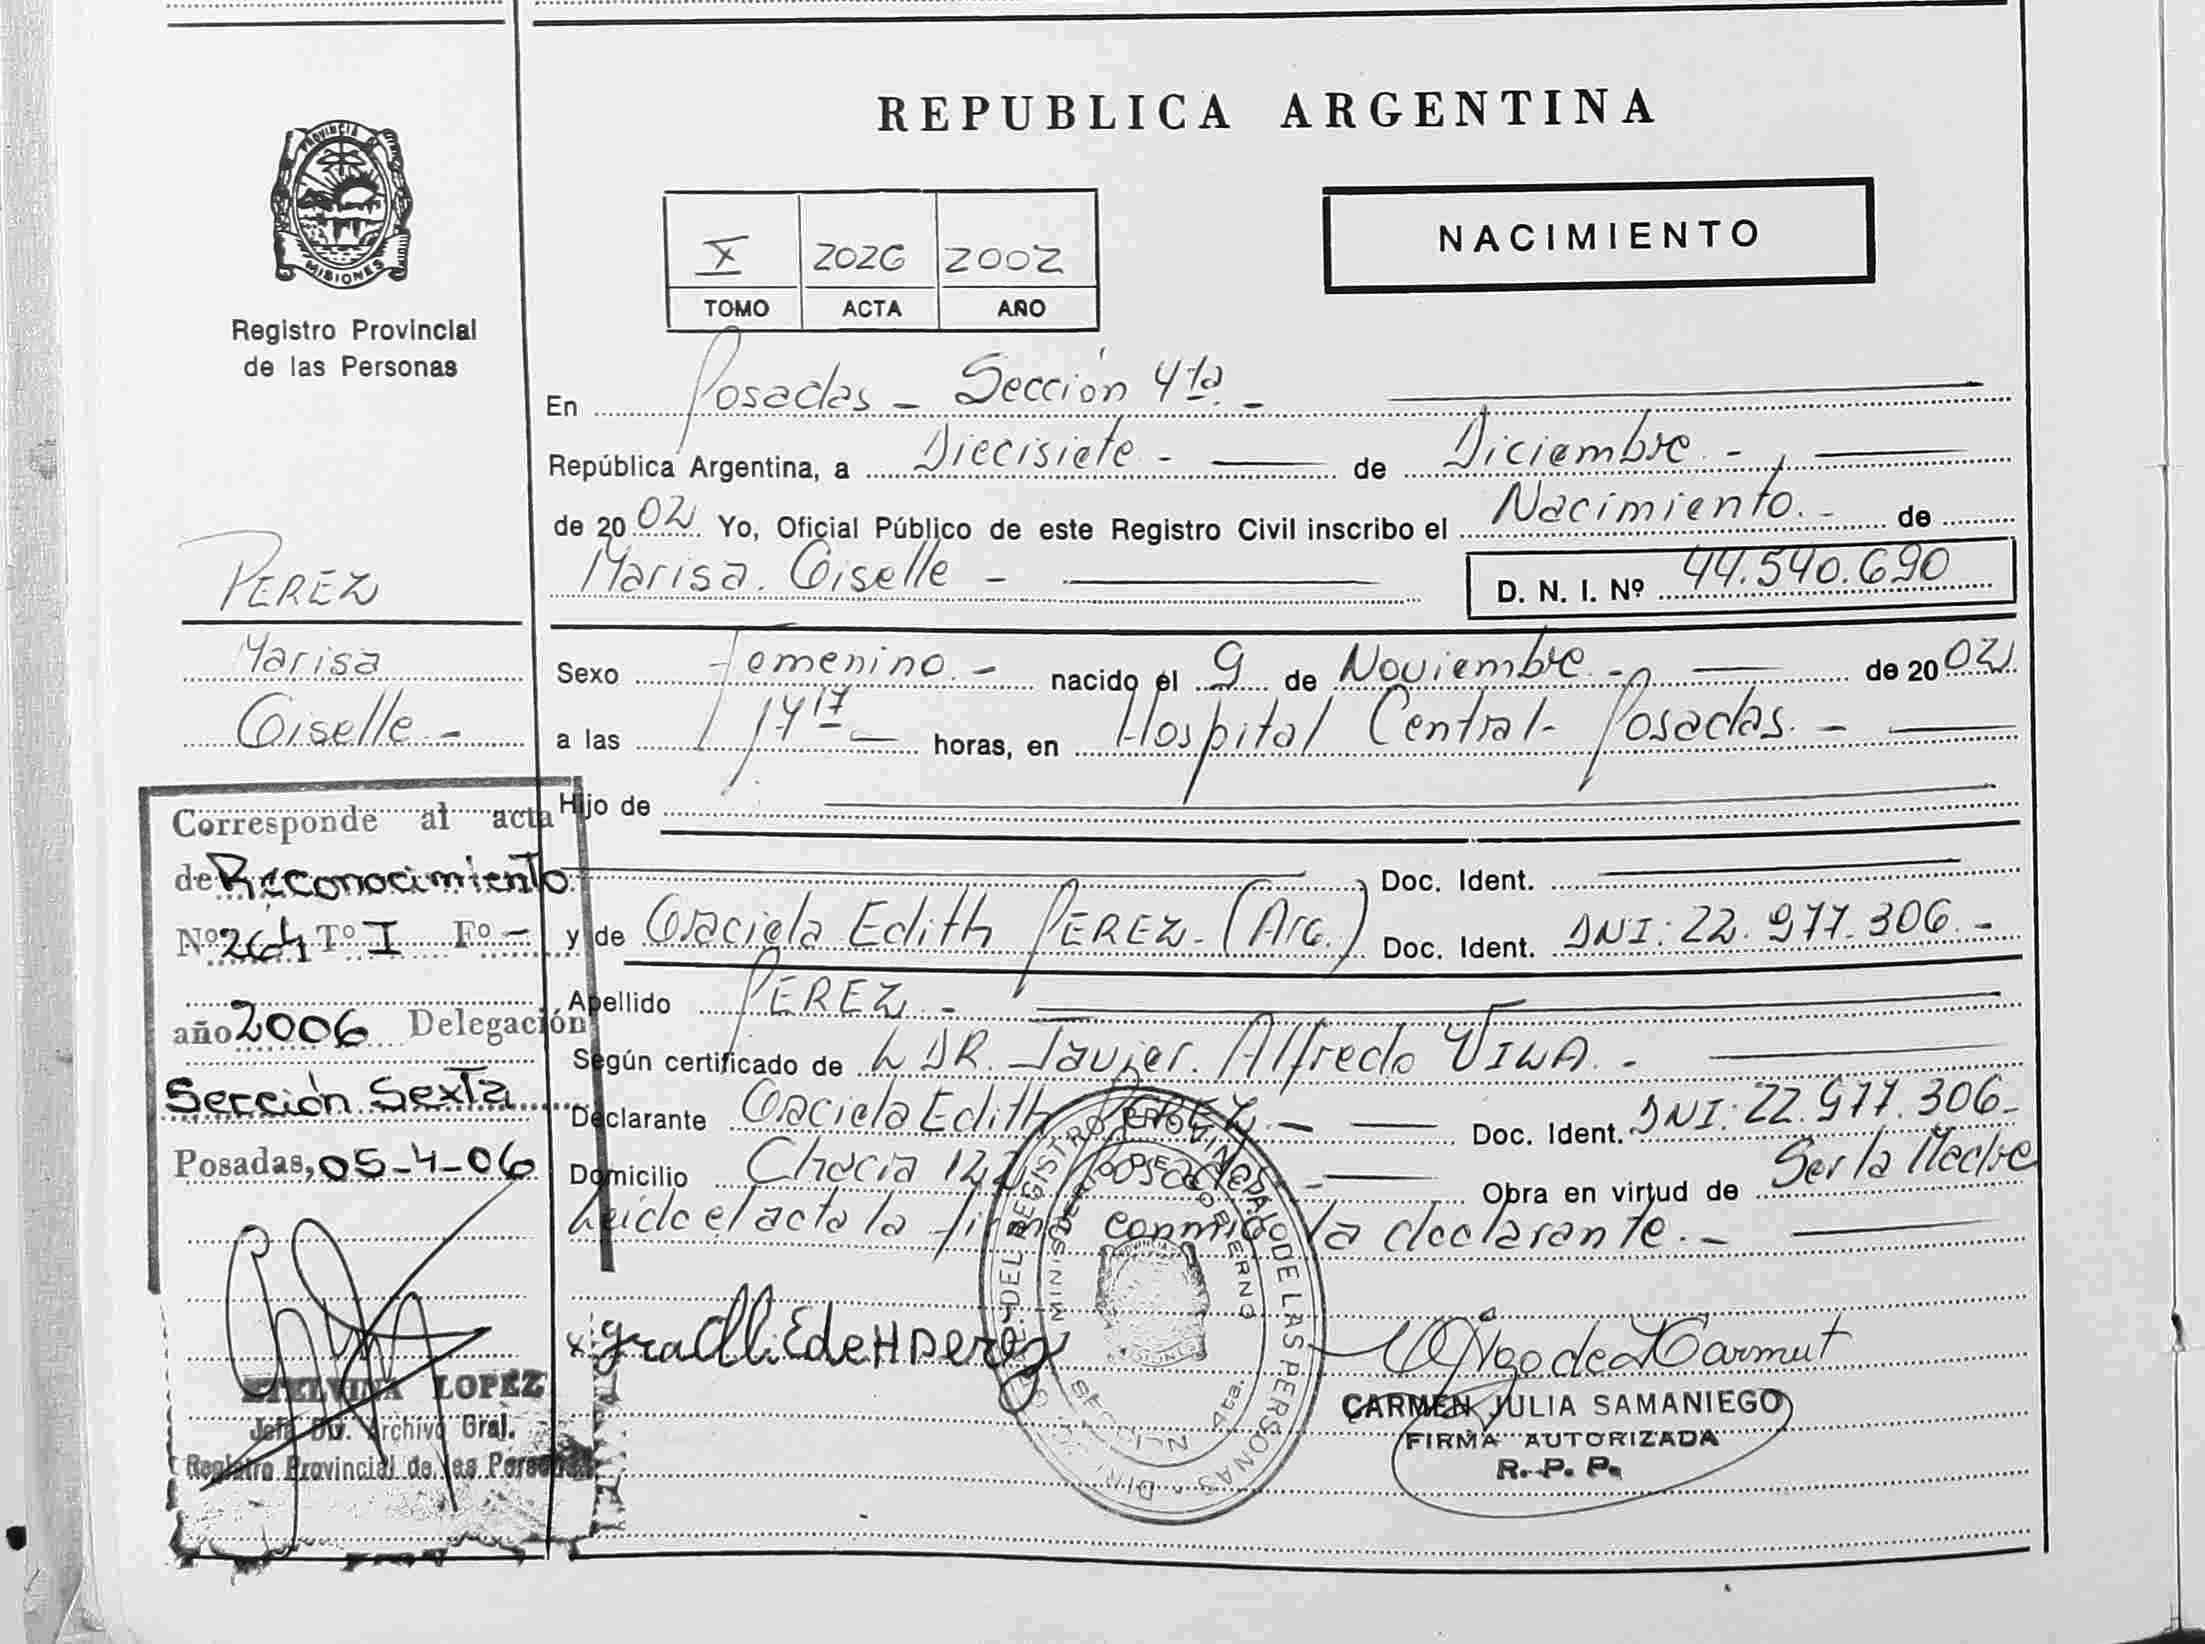 REPUBLICA ARGENTINA
PROVINCIA
MISIONES
Registro Provincial
de las Personas
NACIMIENTO
X 2026 2002
TOMO ACTA AÑO
En Posadas - Sección 4ta. -
República Argentina, a Diecisiete - de Diciembre. -
de 20 02 Yo, Oficial Público de este Registro Civil inscribo el Nacimiento. - de
Marisa. Giselle -
D. N. I. Nº 44.540.690
PEREZ
Marisa
Giselle. -
Sexo Femenino. - nacido el 9 de Noviembre. - de 20 02
a las 14 17 horas, en Hospital Central - Posadas. -
Hijo de
Doc. Ident.
y de Graciela Edith PEREZ. (Arg.) Doc. Ident. DNI: 22.977.306. -
Apellido PEREZ. -
Según certificado de L DR. Javier. Alfredo VILA. -
Declarante Graciela Edith PEREZ. - Doc. Ident. DNI: 22.977.306 -
Domicilio Posadas - Obra en virtud de Ser la Madre
Leído el acta la firma conmigo la declarante. -
Corresponde al acta
de Reconocimiento
Nº 264 Tº I Fº -
año 2006 Delegación
Sección Sexta
Posadas, 05-4-06
ETELVINA LOPEZ
Jefa Div. Archivo Gral.
Registro Provincial de las Personas
DEL REGISTRO PROVINCIAL DE LAS PERSONAS
MINISTERIO DE GOBIERNO
SECCION 4ta.
CARMEN JULIA SAMANIEGO
FIRMA AUTORIZADA
R. P. P.